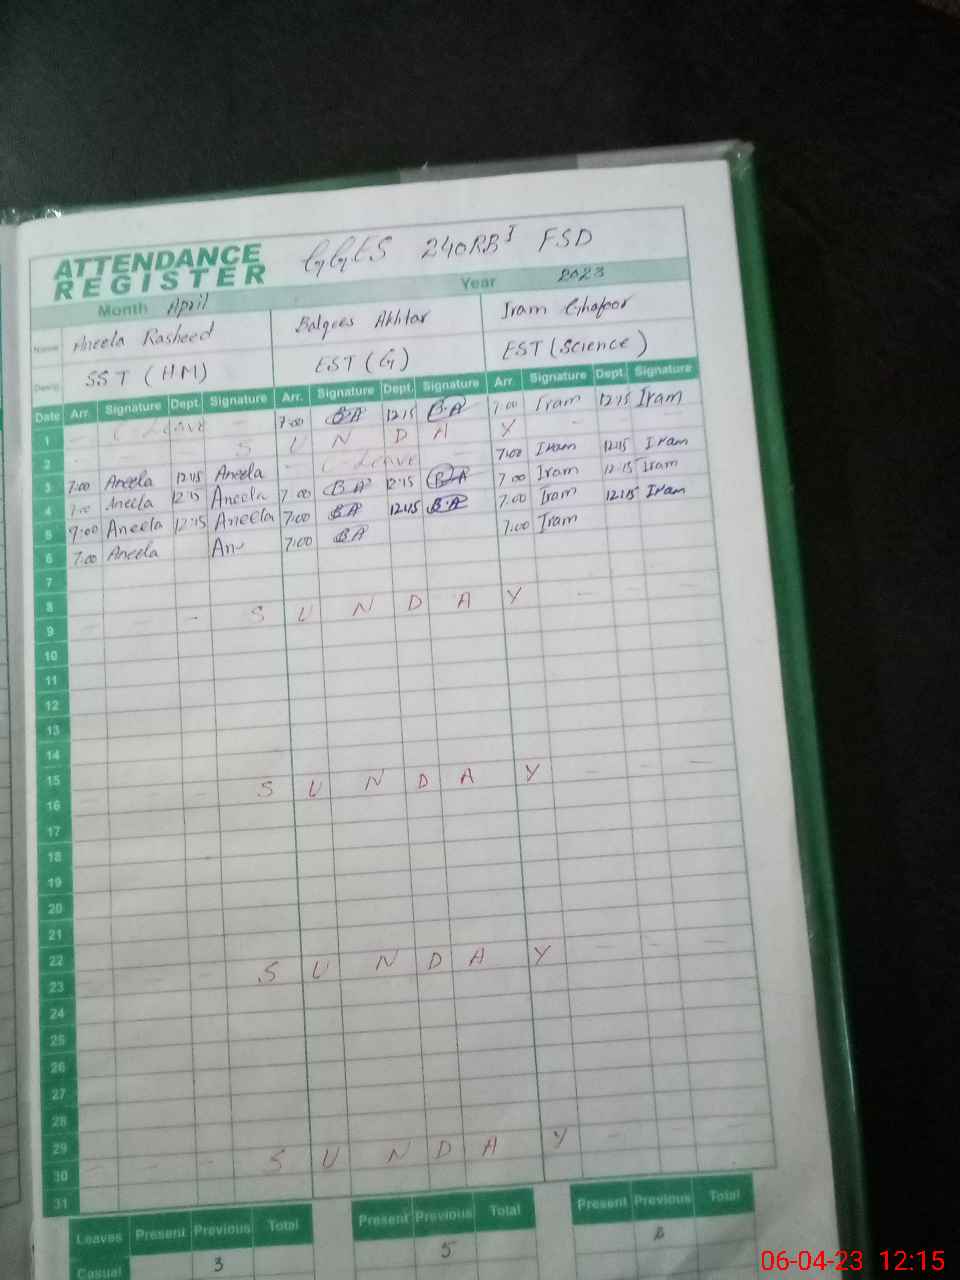 ATTENDANCE REGISTER GGES 240RB I FSD
Month April Year 2023
Name Aneela Rasheed Balqees Akhtar Iram Ghafoor
Desig. SST (HM) EST (G) EST (Science)
Date Arr. Signature Dept. Signature Arr. Signature Dept. Signature Arr. Signature Dept. Signature
1 - C Leave - 7:00 BA 12:15 B.A 7:00 Iram 12:15 Iram
2 - - - S U N D A Y
3 7:00 Aneela 12:15 Aneela - C-Leave - 7:00 Iram 12:15 Iram
4 7:00 Aneela 12:15 Aneela 7:00 B.A 12:15 B.A 7:00 Iram 12:15 Iram
5 7:00 Aneela 12:15 Aneela 7:00 BA 12:15 B.A 7:00 Iram 12:15 Iram
6 7:00 Aneela An 7:00 BA 7:00 Iram
7
8
9 - - - S U N D A Y - - -
10
11
12
13
14
15
16 - - - S U N D A Y - - -
17
18
19
20
21
22
23 - - - S U N D A Y - - -
24
25
26
27
28
29
30 - - - S U N D A Y -
31
Leaves Present Previous Total Present Previous Total Present Previous Total
Casual 3 5
06-04-23 12:15